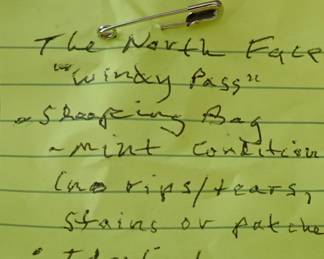 The North Face
"Windy Pass"
- Sleeping Bag
- mint condition
(no rips/tears,
stains or patche